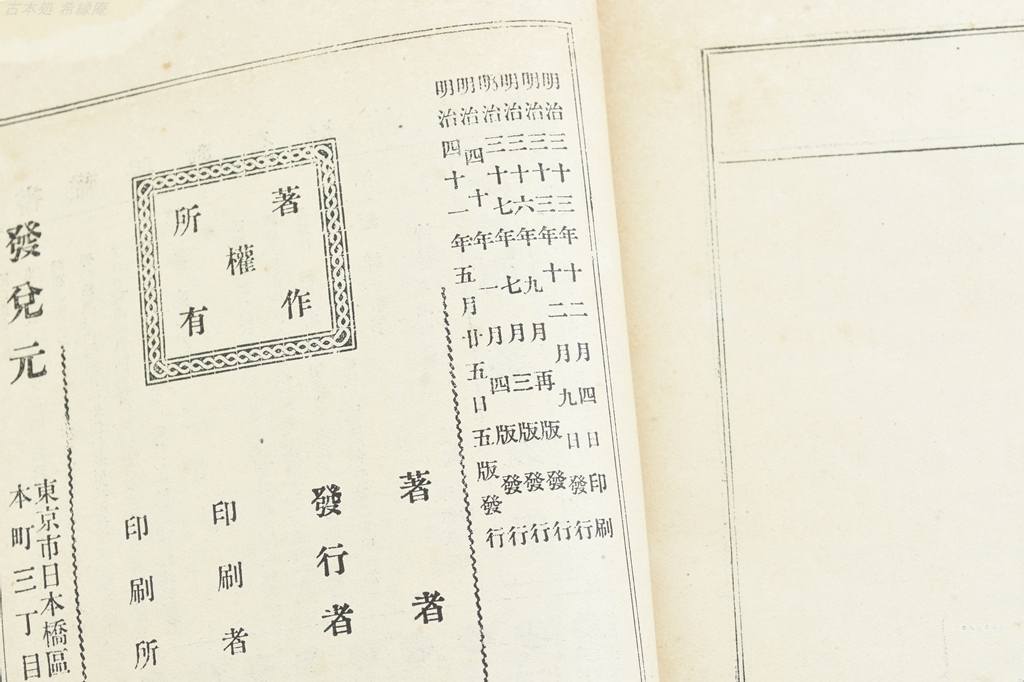 古本処 希縁庵
明治三十三年十二月四日印刷
明治三十三年十二月九日發行
明治三十六年九月再版發行
明治三十七年七月三版發行
明治四十年一月四版發行
明治四十一年五月廿五日五版發行
著作
權
所有
著者
發行者
印刷者
印刷所
東京市日本橋區
本町三丁目
發兌元